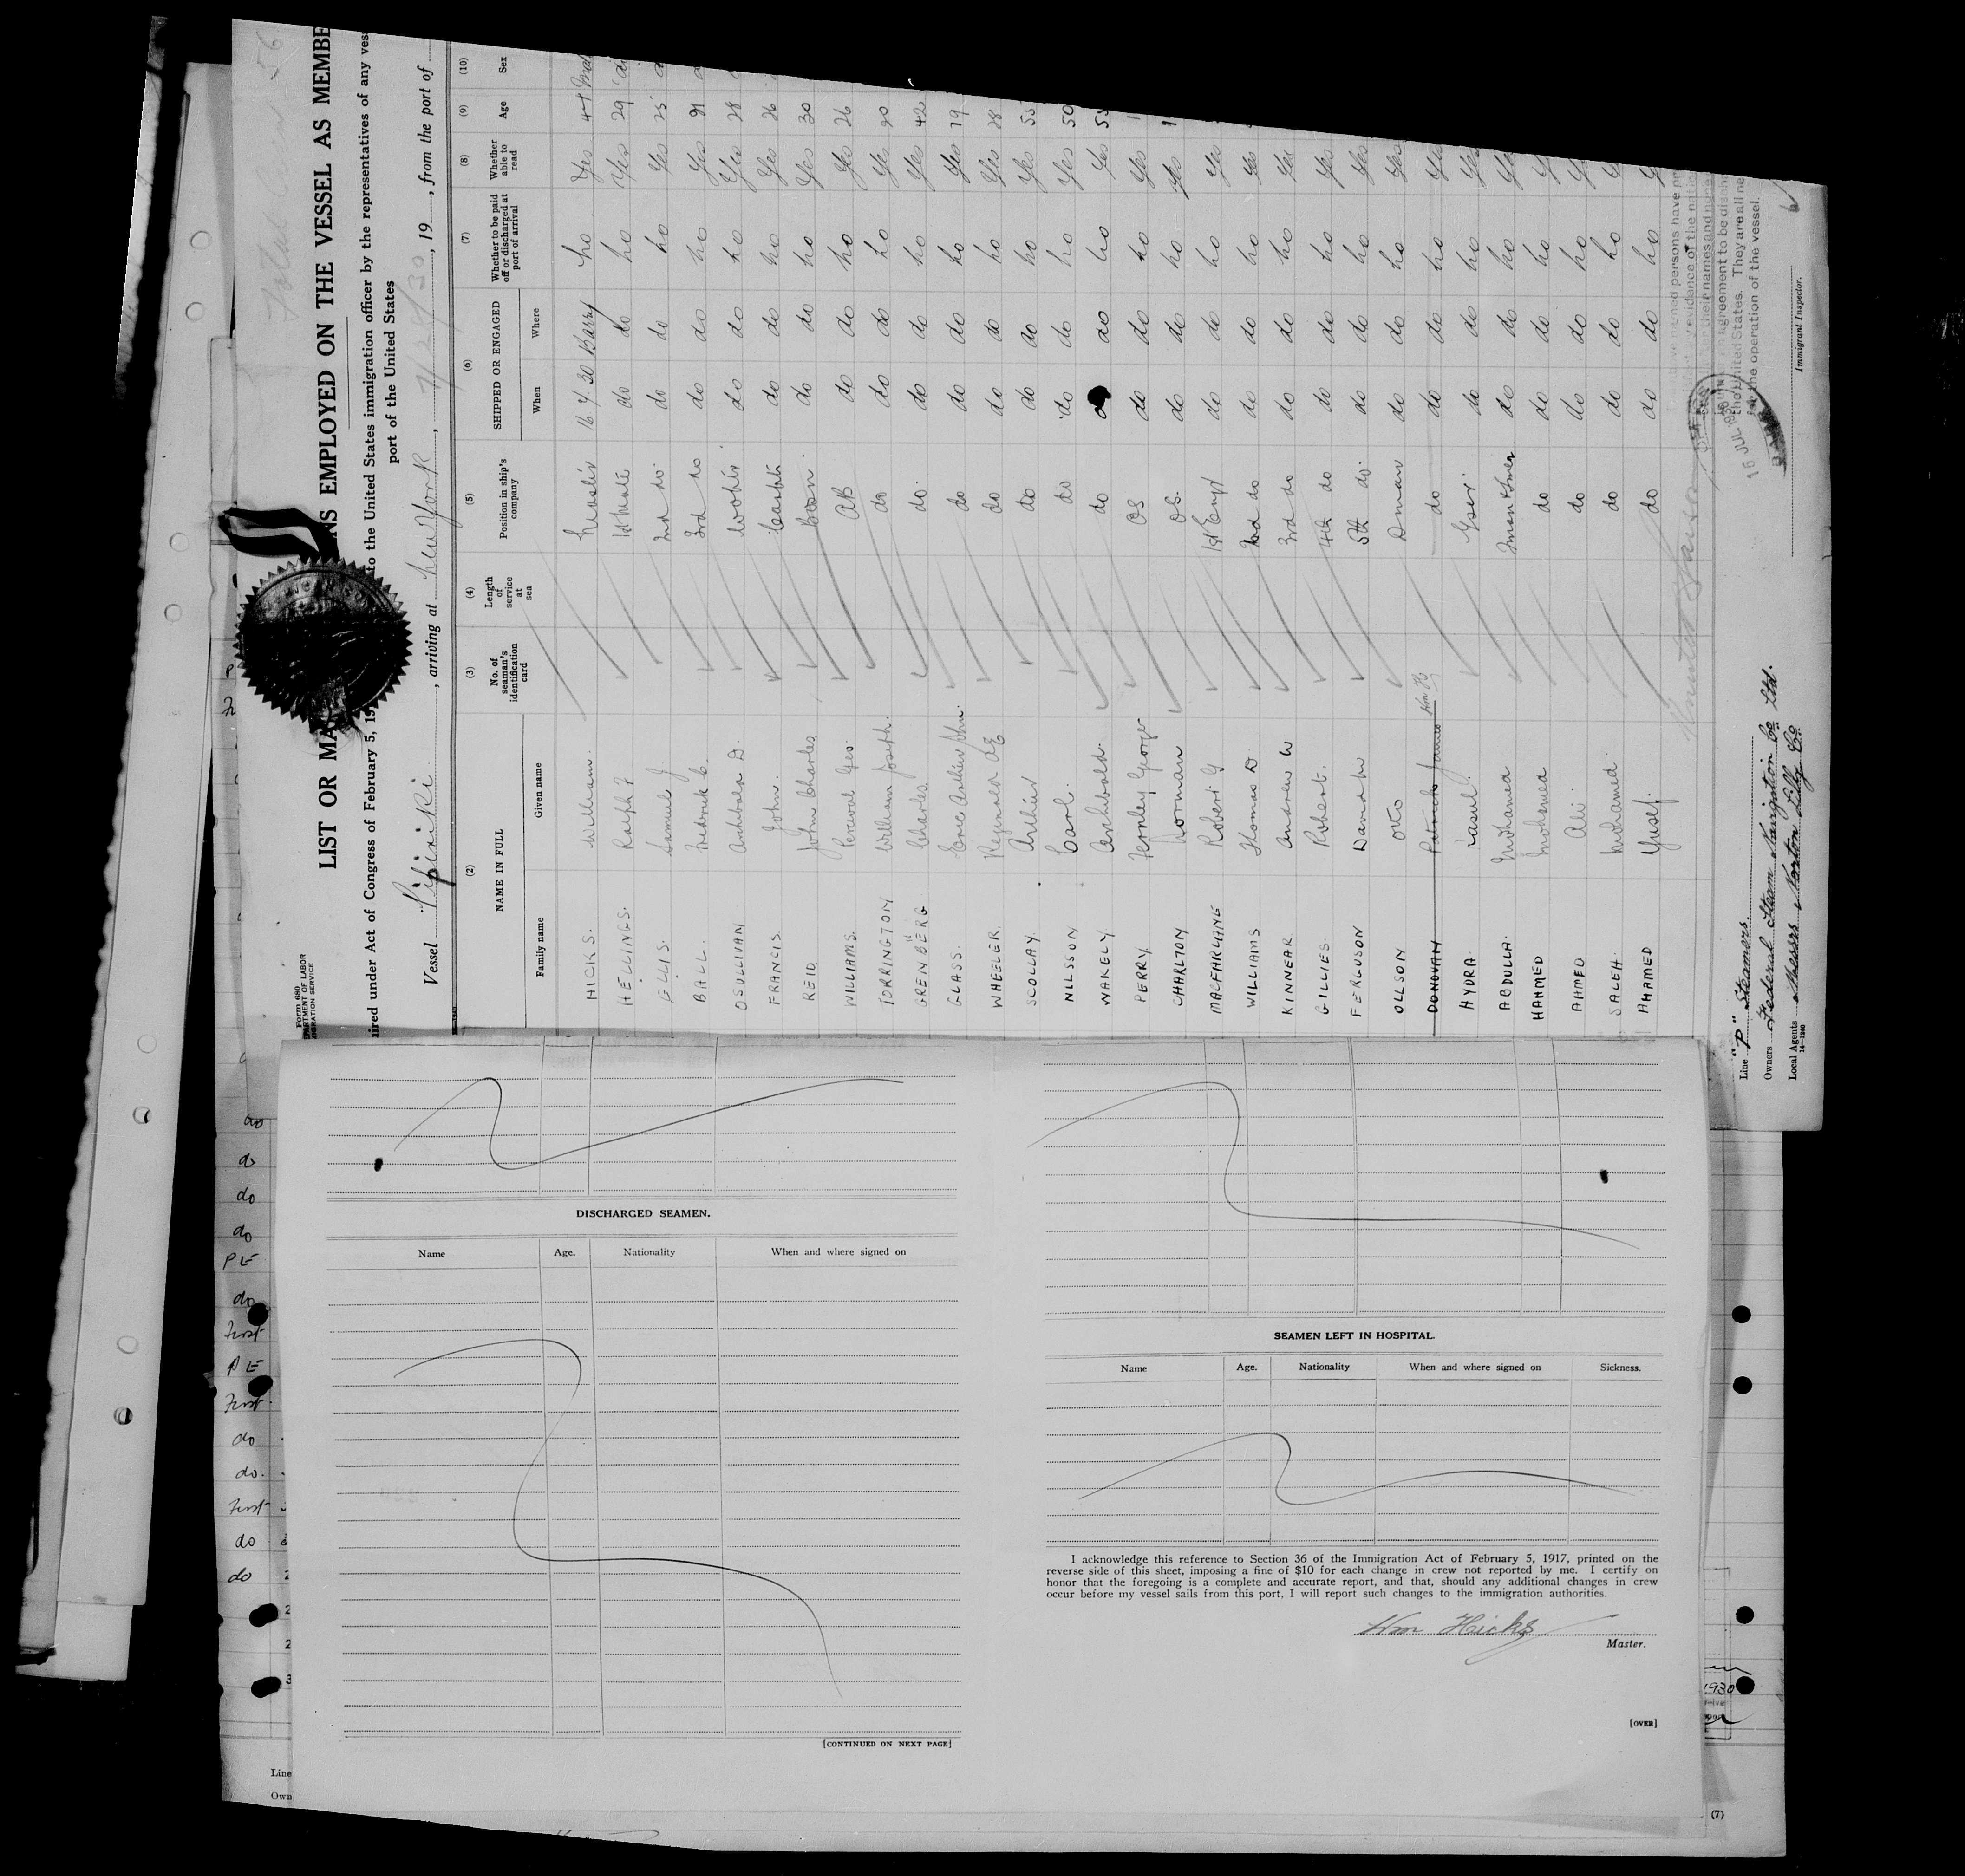 Form 680
LIST OR MA
NS EMPLOYED ON THE VESSEL AS MEMBE
ired under Act of Congress of February 5, 19
to the United States immigration officer by the representatives of any vess
port of the United States
Vessel Pipiriki, arriving at New York, 7/28/30, 19, from the port of
(2) (3) (4) (5) (6) (7) (8) (9) (10)
NAME IN FULL
Family name Given name
No. of seaman's identification card
Length of service at sea
Position in ship's company
SHIPPED OR ENGAGED
When Where
Whether to be paid off or discharged at port of arrival
Whether able to read
Age
Sex
HICKS. William. Master 16 7 30 Barry No Yes
HELLINGS. Ralph F 1st Mate do do No Yes 29
ELLIS. Samuel J 2nd do. do do No Yes 25
BALL. Frederick C. 3rd do do do No Yes
OSULLIVAN Archibald D. do do No Yes 28
FRANCIS. John. do do No Yes 26
REID John Charles Bosn. do do No Yes 30
WILLIAMS. Percival Geo. AB do do No Yes 26
TORRINGTON William Joseph. do do do No Yes
GRENBERG Charles. do. do do No Yes 42
GLASS. Eric Arthur John. do do do No Yes 19
WHEELER. Reginald do do do No Yes 28
SCOLLAY. Arthur do do do No Yes 53
NILSSON Carl. do do do No Yes 50
WAKELY Archibald. do do do No Yes
PERRY. Fernley George OS do do No Yes
CHARLTON Norman OS. do do No Yes
MACFARLANE Robert G 1st Engr do do No Yes
WILLIAMS Thomas D. 2nd do do do No Yes
KINNEAR. Andrew W 3rd do do do No Yes
GILLIES. Robert. 4th do do do No Yes
FERGUSON David W 5th do. do do No Yes
OLLSON Otto Dman do do No Yes
DONOVAN Patrick James do do do No Yes
HYDRA. Casul. Gsir do do No Yes
ABDULLA. Mohamed do do No
HAHMED Mohamed do do do No
AHMED Ali do do do No
SALEH. Mohamed. do do do No
AHAMED Yusef. do do do No
the United States. They are all ne
for the operation of the vessel.
16 JUL 1930
Immigrant Inspector.
Line "P" Steamers.
Owners Federal Steam Navigation Co Ltd.
Local Agents Messrs Norton Lilly Co.
14—1240
DISCHARGED SEAMEN.
Name Age. Nationality When and where signed on
[CONTINUED ON NEXT PAGE]
SEAMEN LEFT IN HOSPITAL.
Name Age. Nationality When and where signed on Sickness.
I acknowledge this reference to Section 36 of the Immigration Act of February 5, 1917, printed on the
reverse side of this sheet, imposing a fine of $10 for each change in crew not reported by me. I certify on
honor that the foregoing is a complete and accurate report, and that, should any additional changes in crew
occur before my vessel sails from this port, I will report such changes to the immigration authorities.
Wm Hicks
Master.
[OVER]
do
do
do
do
PE
do
First
PE
First
do
do.
First
do
do
1930
Line
Own
(7)